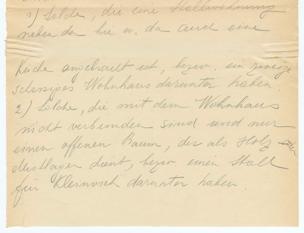 1) Solche, die eine Stallwohnung
neben der hie u. da auch eine
Küche angebaut ist, bezw. ein
Wohnhaus darunter haben.
2) Solche, die mit dem Wohnhaus
nicht verbunden sind und nur
einen offenen Raum, der als Holz
dient, bezw. einen Stall
für Kleinvieh darunter haben.